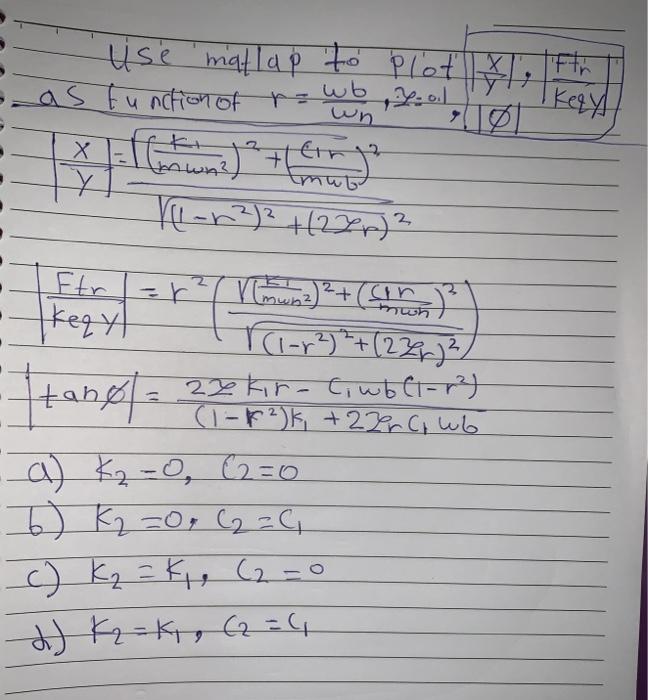 Use matlap to Plot |X/Y|, |Ftr/KeqY|
as function of r = wb/wn, ξ=0.1, |Ø|
|X/Y| = √((K₁/mwn²)² + (C₁r/mwb)²) / √((1-r²)² + (2ξr)²)
|Ftr/KeqY| = r² (√((K₁/mwn²)² + (C₁r/mwn)²) / √((1-r²)² + (2ξr)²))
|tanØ| = 2ξK₁r - C₁wb(1-r²) / (1-r²)K₁ + 2ξrC₁wb
a) K₂=0, C₂=0
b) K₂=0, C₂=C₁
c) K₂=K₁, C₂=0
d) K₂=K₁, C₂=C₁